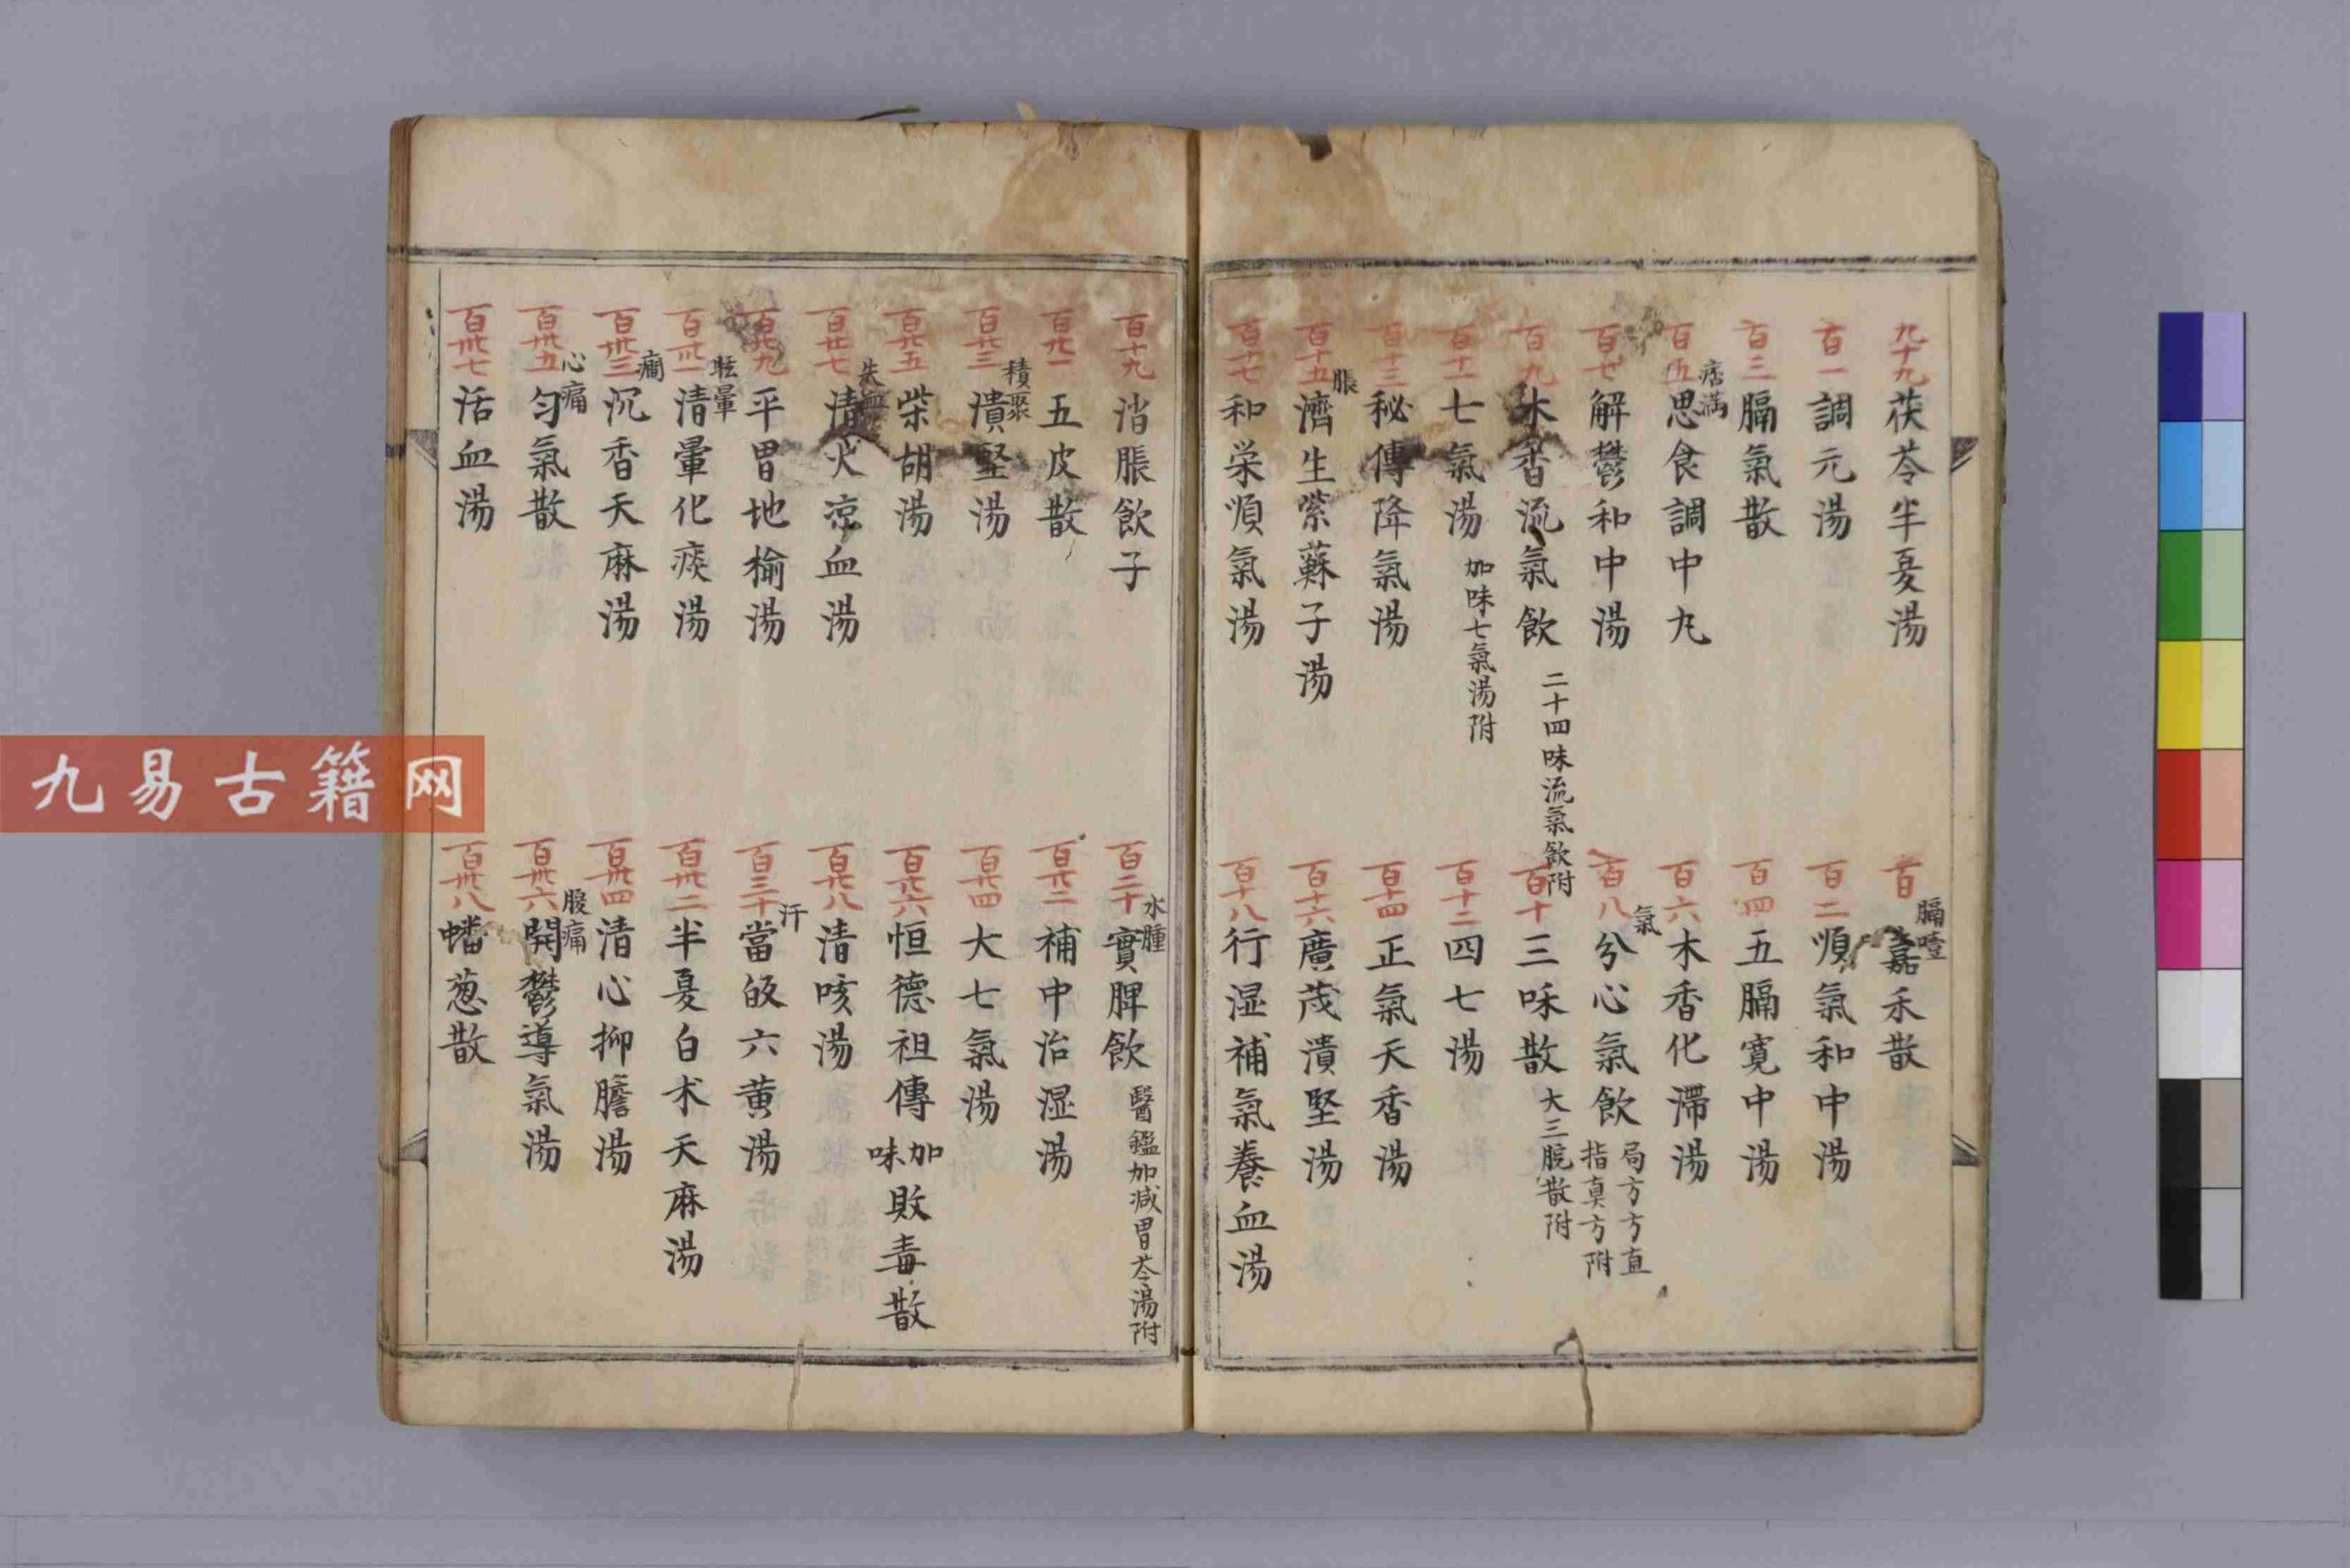 九十九 茯苓半夏湯
百 膈噎 嘉禾散
百一 調元湯
百二 順氣和中湯
百三 膈氣散
百四 五膈寬中湯
百五 痞滿 思食調中丸
百六 木香化滯湯
百七 解鬱和中湯
百八 氣 分心氣飲 局方方直指真方附
百九 木香流氣飲 二十四味流氣飲附
百十 三和散 大三脘散附
百十一 七氣湯 加味七氣湯附
百十二 四七湯
百十三 秘傳降氣湯
百十四 正氣天香湯
百十五 脹 濟生紫蘇子湯
百十六 廣茂潰堅湯
百十七 和栄順氣湯
百十八 行湿補氣養血湯
百十九 消脹飲子
百二十 水腫 實脾飲 醫鑑加减胃苓湯附
百廿一 五皮散
百廿二 補中治湿湯
百廿三 積聚 潰堅湯
百廿四 大七氣湯
百廿五 柴胡湯
百廿六 恒德祖傳加味敗毒散
百廿七 失血 清火凉血湯
百廿八 清咳湯
百廿九 平胃地榆湯
百三十 汗 當皈六黄湯
百卅一 眩暈 清暈化痰湯
百卅二 半夏白朮天麻湯
百卅三 癎 沉香天麻湯
百卅四 清心抑膽湯
百卅五 心痛 匀氣散
百卅六 腹痛 開鬱導氣湯
百卅七 活血湯
百卅八 蟠葱散
九易古籍网